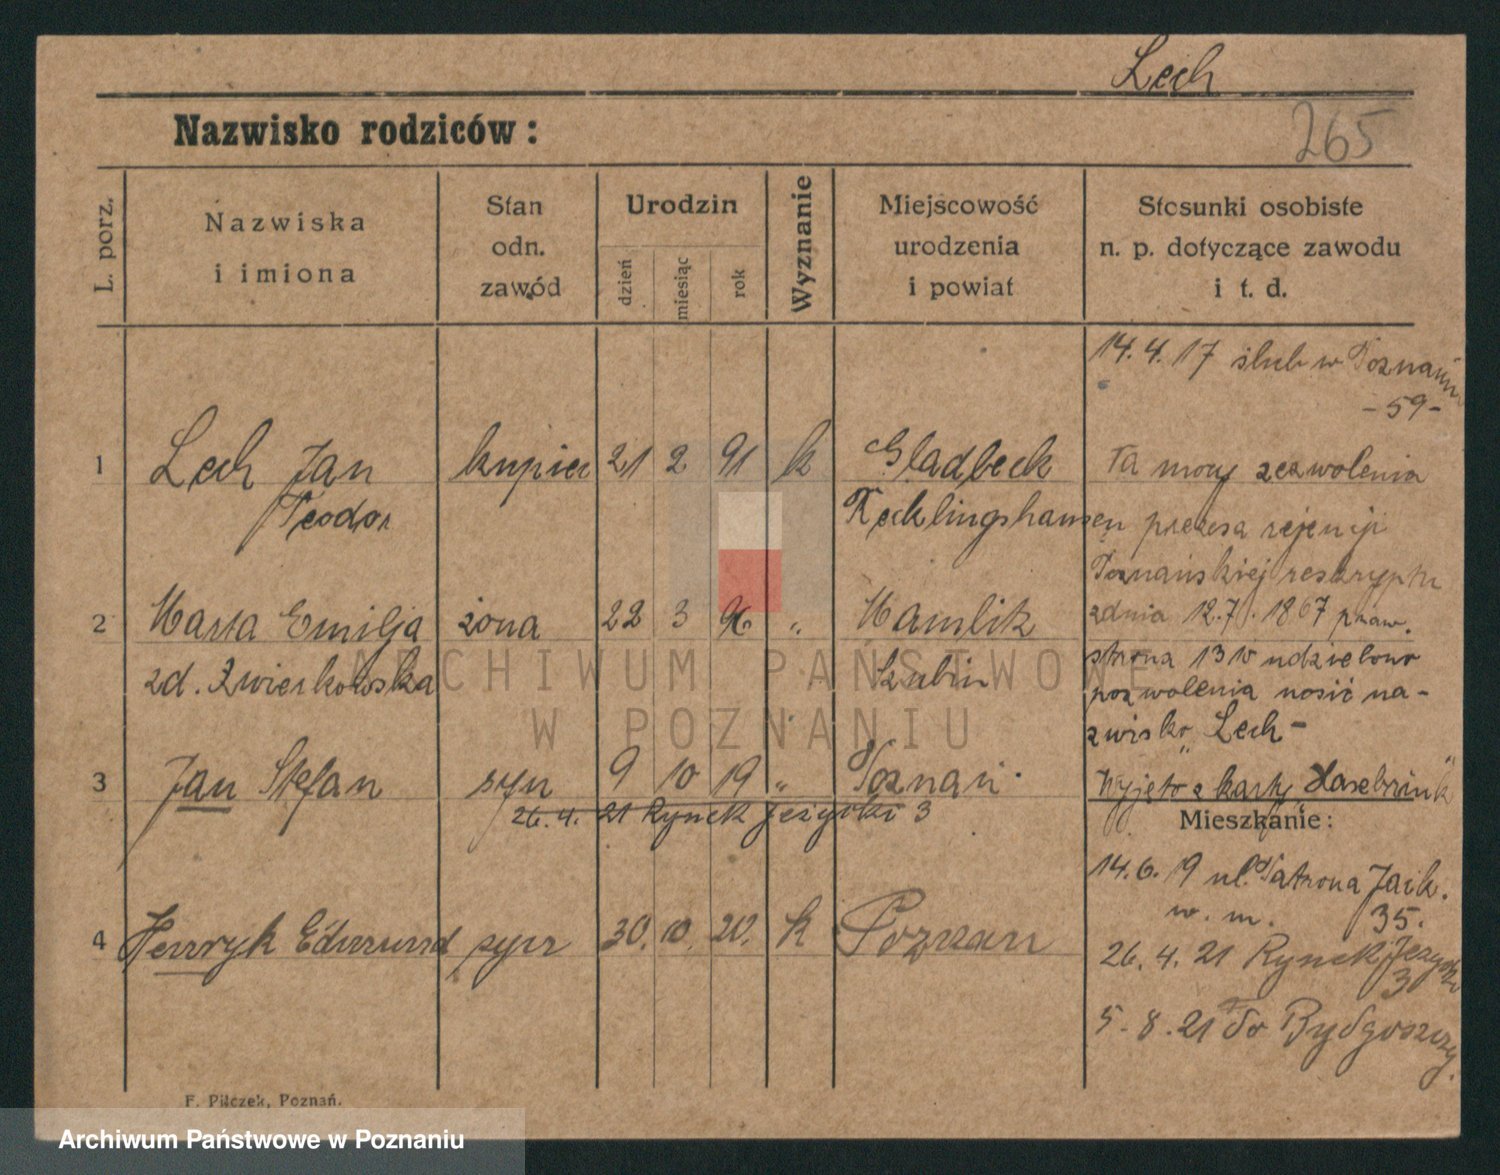 Lech
265
Nazwisko rodziców:
L. porz.
Nazwiska
i imiona
Stan
odn.
zawód
Urodzin
dzień
miesiąc
rok
Wyznanie
Miejscowość
urodzenia
i powiat
Stosunki osobiste
n. p. dotyczące zawodu
i t. d.
14. 4. 17 ślub w Poznaniu
- 59 -
1 Lech Jan kupiec 21 2 91 k Gladbeck
Teodor Recklingshausen
Na mocy zezwolenia
prezesa rejencji
Poznańskiej reskryptu
zdnia 12.7. 1867 praw.
strona udzielono
pozwolenia nosić na-
zwisko „Lech-
Wyjęto z karty Hasebrink"
2 Marta Emilja żona 22 3 96 „
zd. Żwierkowska Szubin
3 Jan Stefan syn 9 10 19 „ Poznań.
26. 4. 21 Rynek Jeżycki 3
Mieszkanie:
14. 6. 19 ul. Patrona Jack.
w. m. 35.
4 Henryk Edmund syn 30. 10. 20. k Poznań
26. 4. 21 Rynek Jeżycki
3
5. 8. 21 do Bydgoszczy.
F. Pilczek, Poznań.
ARCHIWUM PAŃSTWOWE
W POZNANIU
Archiwum Państwowe w Poznaniu